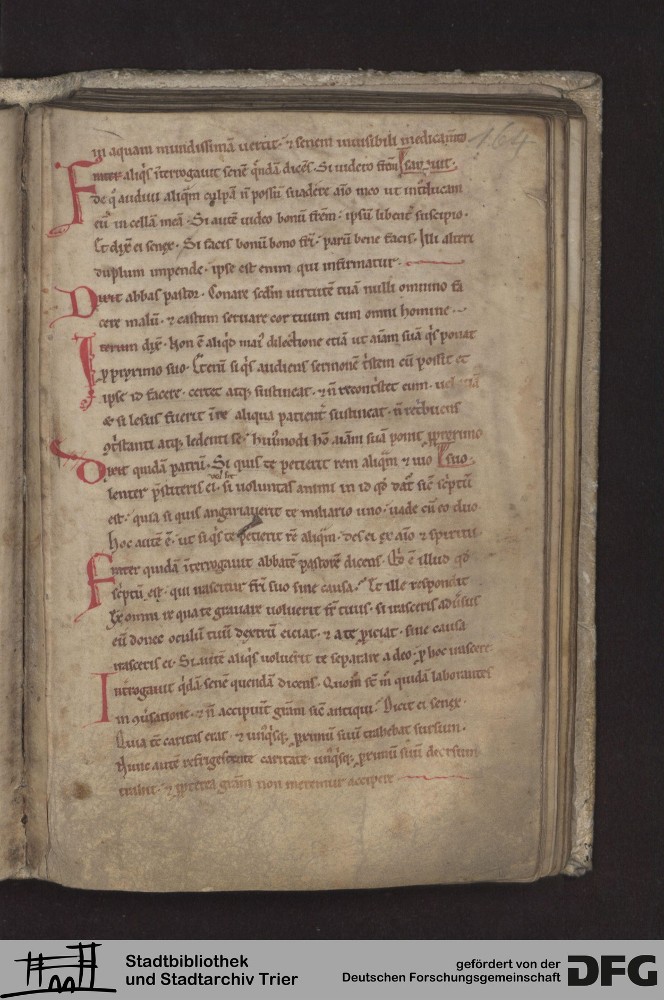 in aquam mundissimā vertit · & senem invisibili medicamto
164
Frater aliqs ītrogavit senē qndā dicēs · Si videro frēm
de q̄ audivi aliqm culpā n̄ possū suadere aīo meo ut introducam
eū in cellā meā · Si autē video bonū frēm · ipsū libent suscipio ·
Et dix ei senex · Si facis bonū bono frī · parū bene facis · Illi alteri
duplum impende · ipse est enim qui infirmatur ·
Dixit abbas pastor · Conare scdm virtutē tuā nulli omnino fa
cere malū · & castum servare cor tuum cum omni homine ·
Iterum dix · Non ē aliqd mai dilectione etiā ut aīam suā qs ponat
p proximo suo · Et si qs audiens sermonē tristem cū possit et
ipse id facere · certet atq sustineat · & n̄ recontristet eum · vel
& si lesus fuerit ī re aliqua patient sustineat · n̄ retribuens
9tristanti atq ledenti se · huiusmodi hō aīam suā ponit p proximo
Dixit quidā patrū · Si quis te petierit rem aliqm & vio suo
lenter p̄stiteris ei · si voluntas animi in id qd dat sic scriptū
est · quia si quis angariaverit te miliario uno · vade cū eo duo
hoc autē ē · ut si qs te petierit rē aliqm · des ei ex aīo & spiritu ·
Frater quidā ītrogavit abbatē pastorē dicens · Qd ē illud qd
scriptū est · qui irascitur frī suo sine causa · Et ille respondit
Ex omni re qua te gravare voluerit fr tuus · si irasceris adversus
eū donec oculū tuū dextrū eiciat · & a te piciat · sine causa
irasceris ei · Si autē aliqs voluerit te separare a deo · p hoc irascere
Introgavit qdā senē quendā dicens · Quom sē m quidā laborantes
in 9versatione · & n̄ accipiunt gratiam sic antiqui · Dicit ei senex ·
Quia tē caritas erat · & unqsq primū suū trahebat sursum ·
Nunc autē refrigescente caritate unqsq primum suū deorsum
trahit · & pp terea gratiam non meremur accipere
Stadtbibliothek
und Stadtarchiv Trier
gefördert von der
Deutschen Forschungsgemeinschaft
DFG